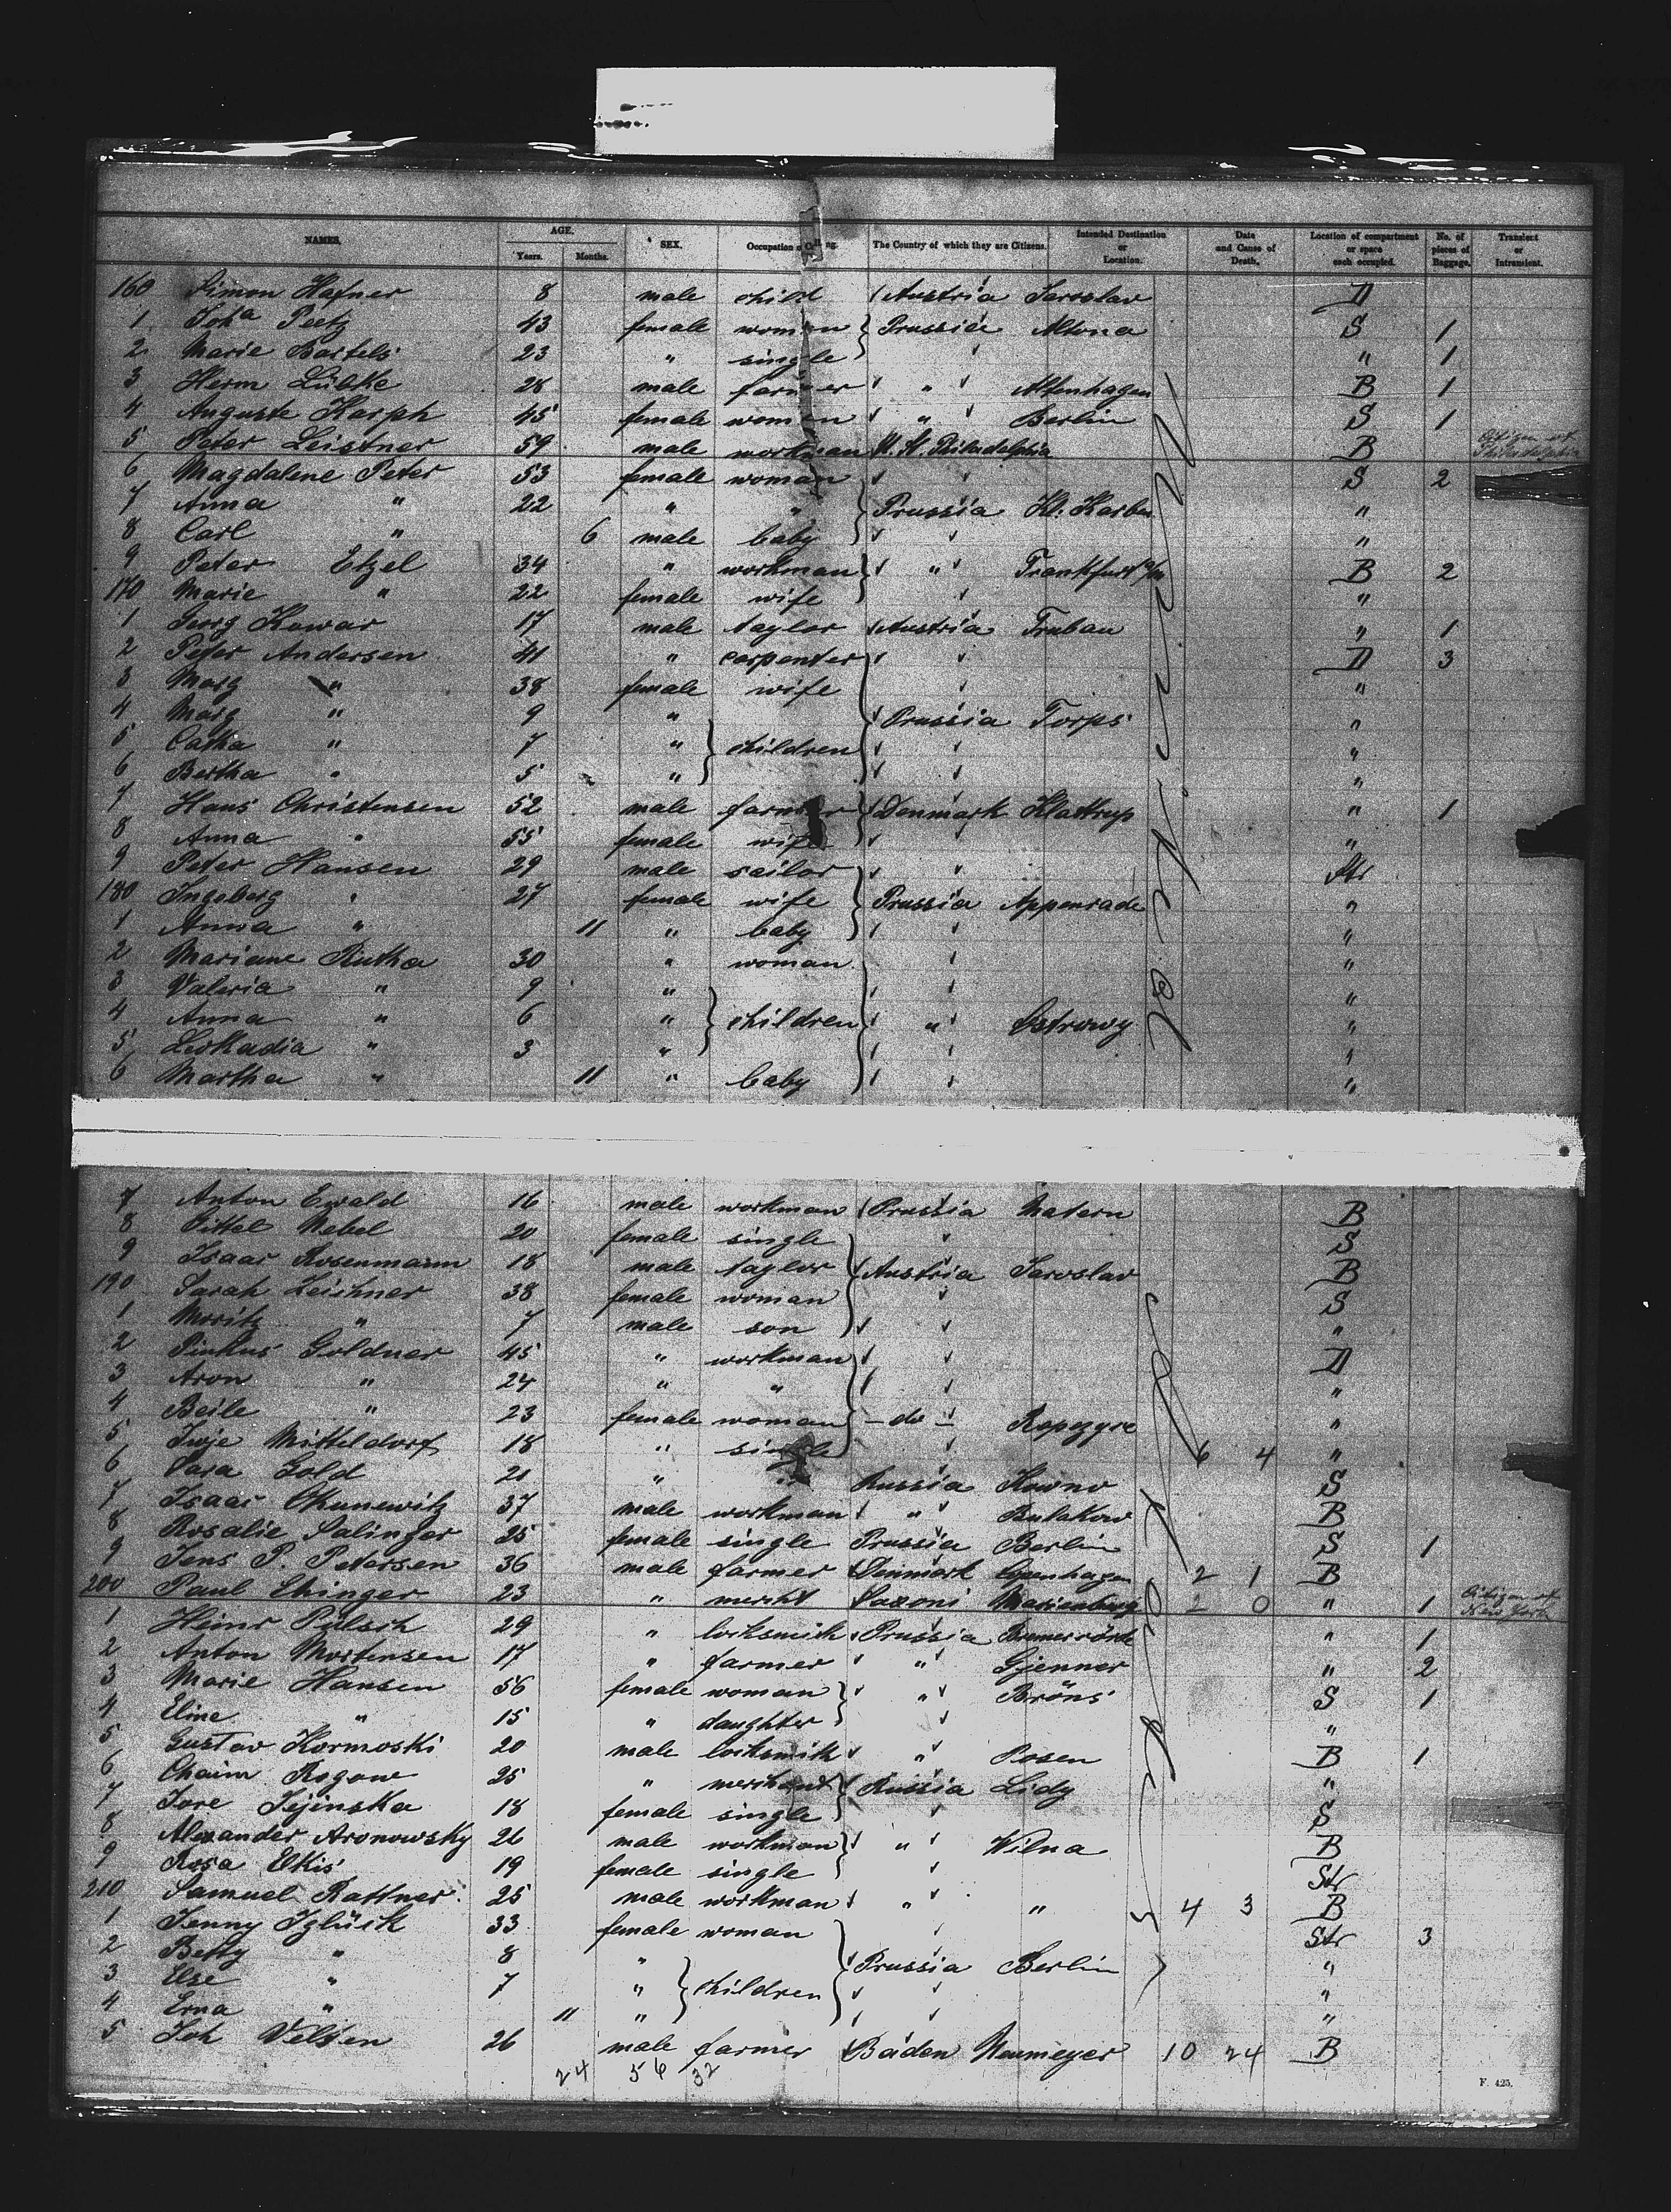 NAMES. AGE. Years. Months. SEX. Occupation or Calling. The Country of which they are Citizens. Intended Destination or Location. Date and Cause of Death. Location of compartment or space each occupied. No. of pieces of Baggage. Transient or Intransient.
160 Simon Hafner 8 male child Austria Jaroslav D
1 Joha Peetz 43 female woman Prussia Altona S 1
2 Marie Bartels 23 " single " 1
3 Herm Lübke 28 male farmer " Altenhagen B 1
4 Auguste Karph 45 female woman " Berlin S 1
5 Peter Leistner 59 male workman U. St. Philadelphia B Citizen of Philadelphia
6 Magdalene Peter 53 female woman S 2
7 Anna " 22 " " Prussia Kl. Karben "
8 Carl " 6 male baby "
9 Peter Etzel 34 " workman " Frankfurt a/M B 2
170 Marie " 22 female wife "
1 Georg Kowar 17 male taylor Austria Trubau " 1
2 Peter Andersen 41 " carpenter D 3
3 Marg " 38 female wife "
4 Marg " 9 " Prussia Torps "
5 Catha " 7 " children "
6 Bertha " 5 " "
7 Hans Christensen 52 male farmer Denmark Klattrup " 1
8 Anna " 55 female wife "
9 Peter Hansen 29 male sailor Str
180 Ingeberg " 27 female wife Prussia Appenrade "
1 Anna " 11 " baby "
2 Mariane Rutha 30 " woman "
3 Valeria " 9 " "
4 Anna " 6 " children " Ostrowy "
5 Leokadia " 3 " "
6 Martha " 11 " baby "
7 Anton Ewald 16 male workman Prussia Matern B
8 Pittel Nebel 20 female single S
9 Isaac Rosenmann 18 male taylor Austria Jaroslav B
190 Sarah Leichner 38 female woman S
1 Moritz " 7 male son "
2 Pinkus Goldner 45 " workman D
3 Aron " 24 " " "
4 Beile " 23 female woman - do - Ropczyce "
5 Mitteldorf 18 " single 6 4 "
6 Sara Gold 21 " " Russia Kowno S
7 Isaac Okunewitz 37 male workman " Bulakow B
8 Rosalie Salinger 25 female single Prussia Berlin S 1
9 Jens P. Petersen 36 male farmer Denmark Copenhagen 2 1 B
200 Paul Ehinger 23 " mercht Saxoni Marienburg 2 0 " 1 Citizen of New York
1 Heinr Pülsch 29 " locksmith Prussia Bremervörde " 1
2 Anton Mortensen 17 " farmer " Gjenner " 2
3 Marie Hansen 56 female woman " Bröns S 1
4 Eline " 15 " daughter "
5 Gustav Kormoski 20 male locksmith " Posen B 1
6 Chaim Rogow 25 " merchant Russia Lidy "
7 Jore Jejinska 18 female single S
8 Alexander Aronowsky 26 male workman " Wilna B
9 Rosa Elkis 19 female single Str
210 Samuel Rattner 25 male workman " " 4 3 B
1 Jenny Iglück 33 female woman Str 3
2 Betty " 8 " Prussia Berlin "
3 Else " 7 " children "
4 Erna " 11 " "
5 Joh Velten 26 male farmer Baden Neumeyer 10 24 B
24 56 32
F. 425.